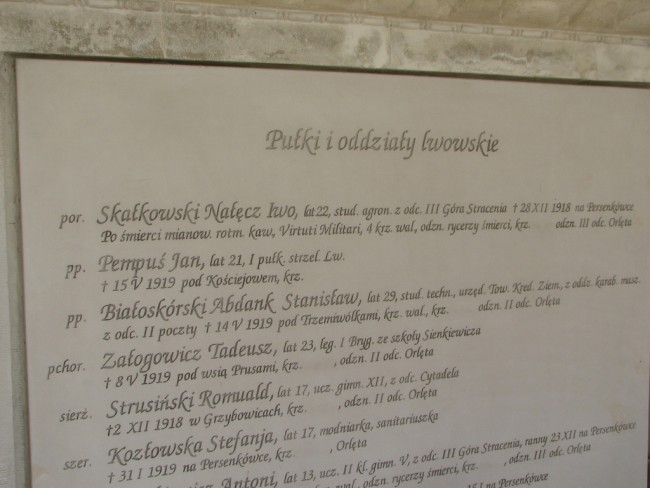 Pułki i oddziały lwowskie
por. Skałkowski Nałęcz Iwo, lat 22, stud. agron. z odc. III Góra Stracenia † 28 XII 1918 na Persenkówce
Po śmierci mianow. rotm. kaw, Virtuti Militari, 4 krz. wal, odzn. rycerzy śmierci, krz. odzn. III odc. Orlęta
pp. Pempuś Jan, lat 21, I pułk. strzel. Lw.
† 15 V 1919 pod Kościejowem, krz.
pp. Białoskórski Abdank Stanisław, lat 29, stud. techn., urzęd. Tow. Kred. Ziem., z oddz. karab. masz.
z odc. II poczty † 14 V 1919 pod Trzemiwólkami, krz. wal., krz. odzn. II odc. Orlęta
pchor. Załogowicz Tadeusz, lat 23, leg. I Bryg. ze szkoły Sienkiewicza
† 8 V 1919 pod wsią Prusami, krz. , odzn. II odc. Orlęta
sierż. Strusiński Romuald, lat 17, ucz. gimn. XII, z odc. Cytadela
†2 XII 1918 w Grzybowicach, krz. , odzn. II odc. Orlęta
szer. Kozłowska Stefanja, lat 17, modniarka, sanitariuszka
† 31 I 1919 na Persenkówce, krz. , Orlęta
Antoni, lat 13, ucz. II kl. gimn. V, z odc. III Góra Stracenia, ranny 23 XII na Persenkówce
wal., odzn. rycerzy śmierci, krz. , odzn. III odc. Orlęta
na Persenkówce